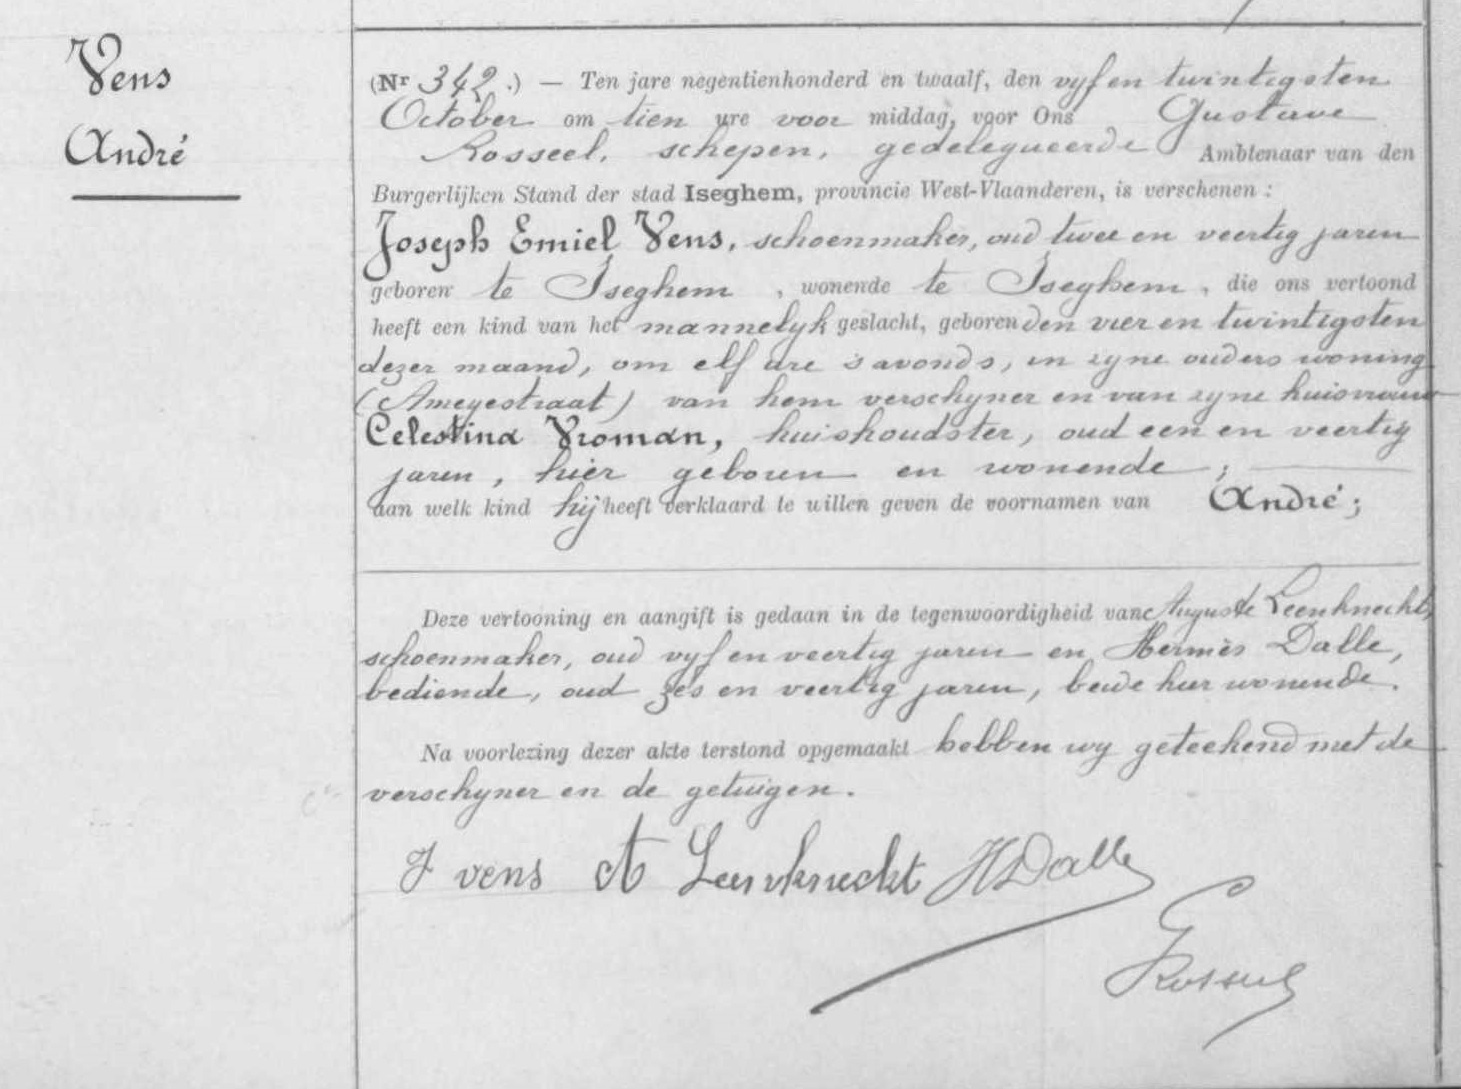 Vens
André
(Nr 342.) — Ten jare negentienhonderd en twaalf, den vyf en twintigsten
October om tien ure voor middag, voor Ons Gustave
Rosseel, schepen, gedelegueerde Ambtenaar van den
Burgerlijken Stand der stad Iseghem, provincie West-Vlaanderen, is verschenen :
Joseph Emiel Vens, schoenmaker, oud twee en veertig jaren
geboren te Iseghem , wonende te Iseghem , die ons vertoond
heeft een kind van het mannelyk geslacht, geboren den vier en twintigsten
dezer maand, om elf ure s avonds, in zyne ouders woning
(Ameyestraat) van hem verschyner en van zyne huisvrouw
Celestina Vroman, huishoudster, oud een en veertig
jaren, hier geboren en wonende ;
aan welk kind hij heeft verklaard te willen geven de voornamen van André ;
Deze vertooning en aangift is gedaan in de tegenwoordigheid van Auguste Leenknecht,
schoenmaker, oud vyf en veertig jaren en Hermès Dalle,
bediende, oud zes en veertig jaren, beide hier wonende.
Na voorlezing dezer akte terstond opgemaakt hebben wy geteekend met de
verschyner en de getuigen.
J vens A Leenknecht HDalle
G Rosseel